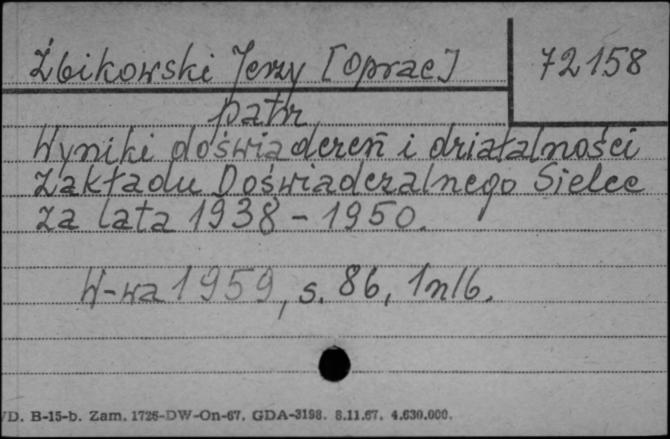 Żbikowski Jerzy [oprac]
72158
patrz
Wyniki doświadczeń i działalności
Zakładu Doświadczalnego Sielec
za lata 1938 - 1950.
W-wa 1959, s. 86, 1 nlb.
VD. B-15-b. Zam. 1726-DW-On-67. GDA-3198. 8.11.67. 4.630.000.